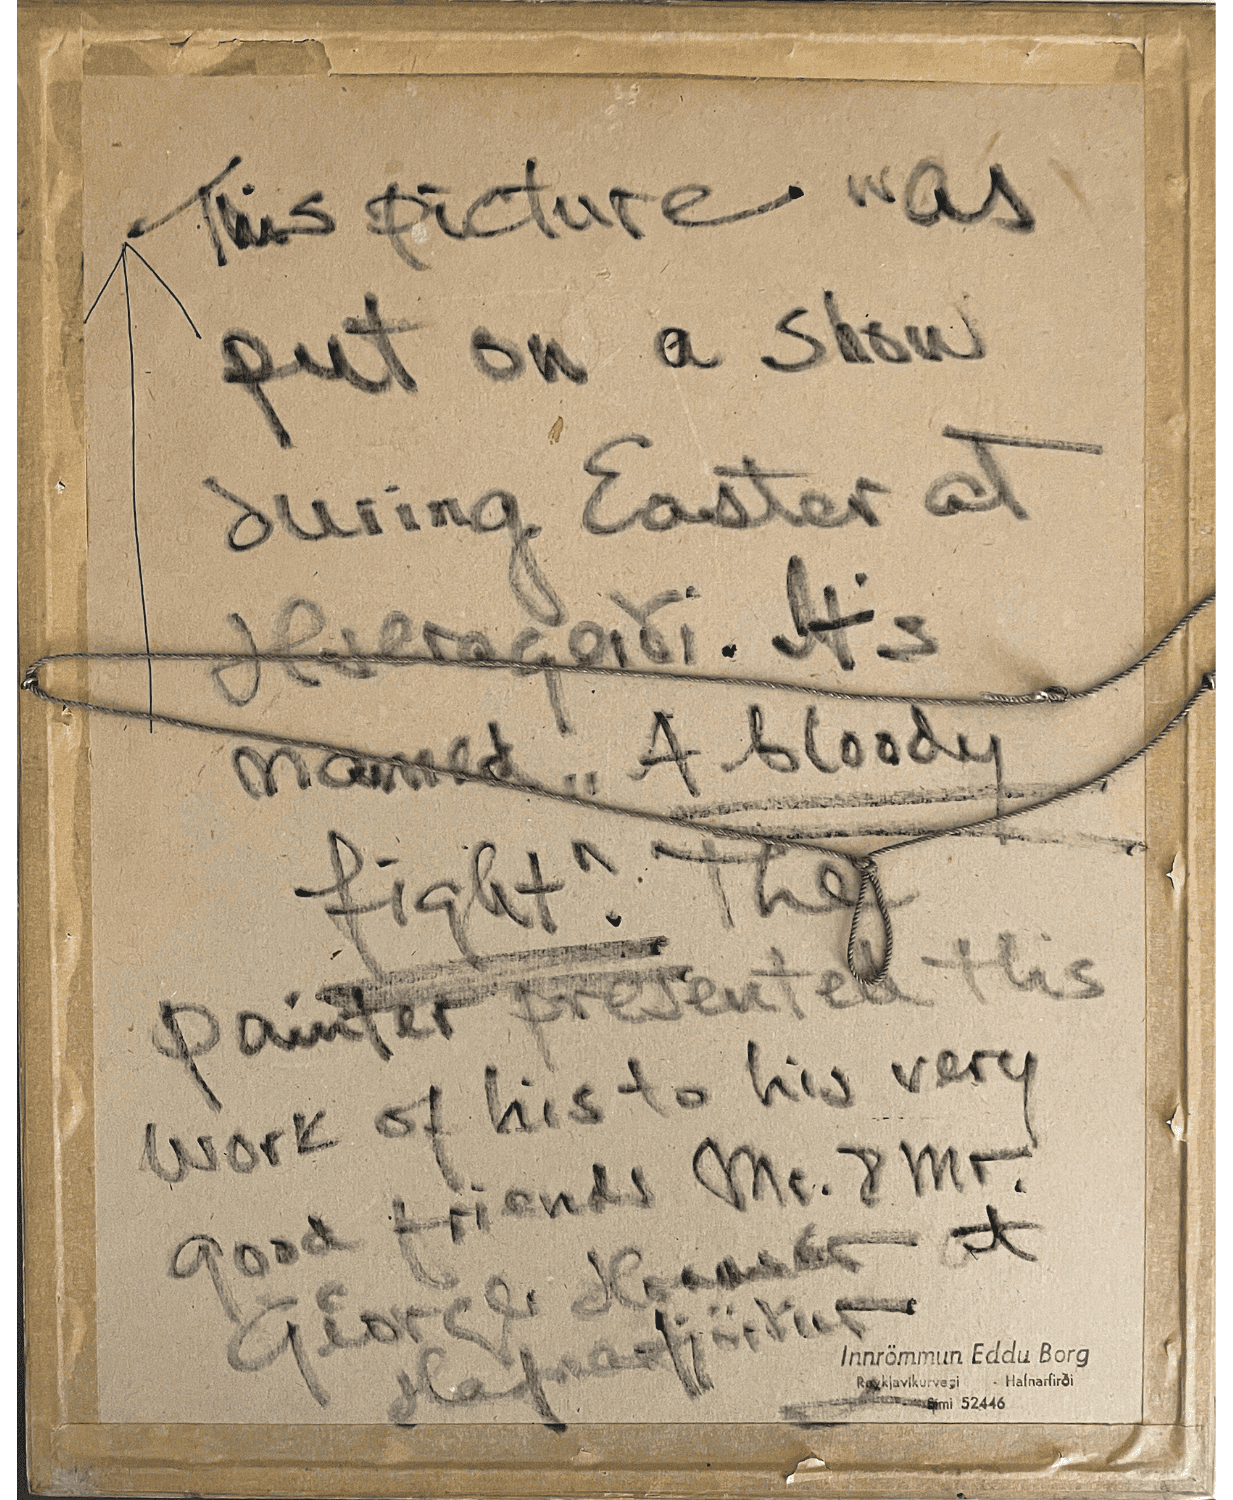 This picture was
put on a show
during Easter at
Hveragerði. It's
named „A bloody
fight“. The
painter presented this
work of his to his very
good friends Mr. & Mr.
George at
Hafnarfjörður
Innrömmun Eddu Borg
Reykjavíkurvegi - Hafnarfirði
Sími 52446